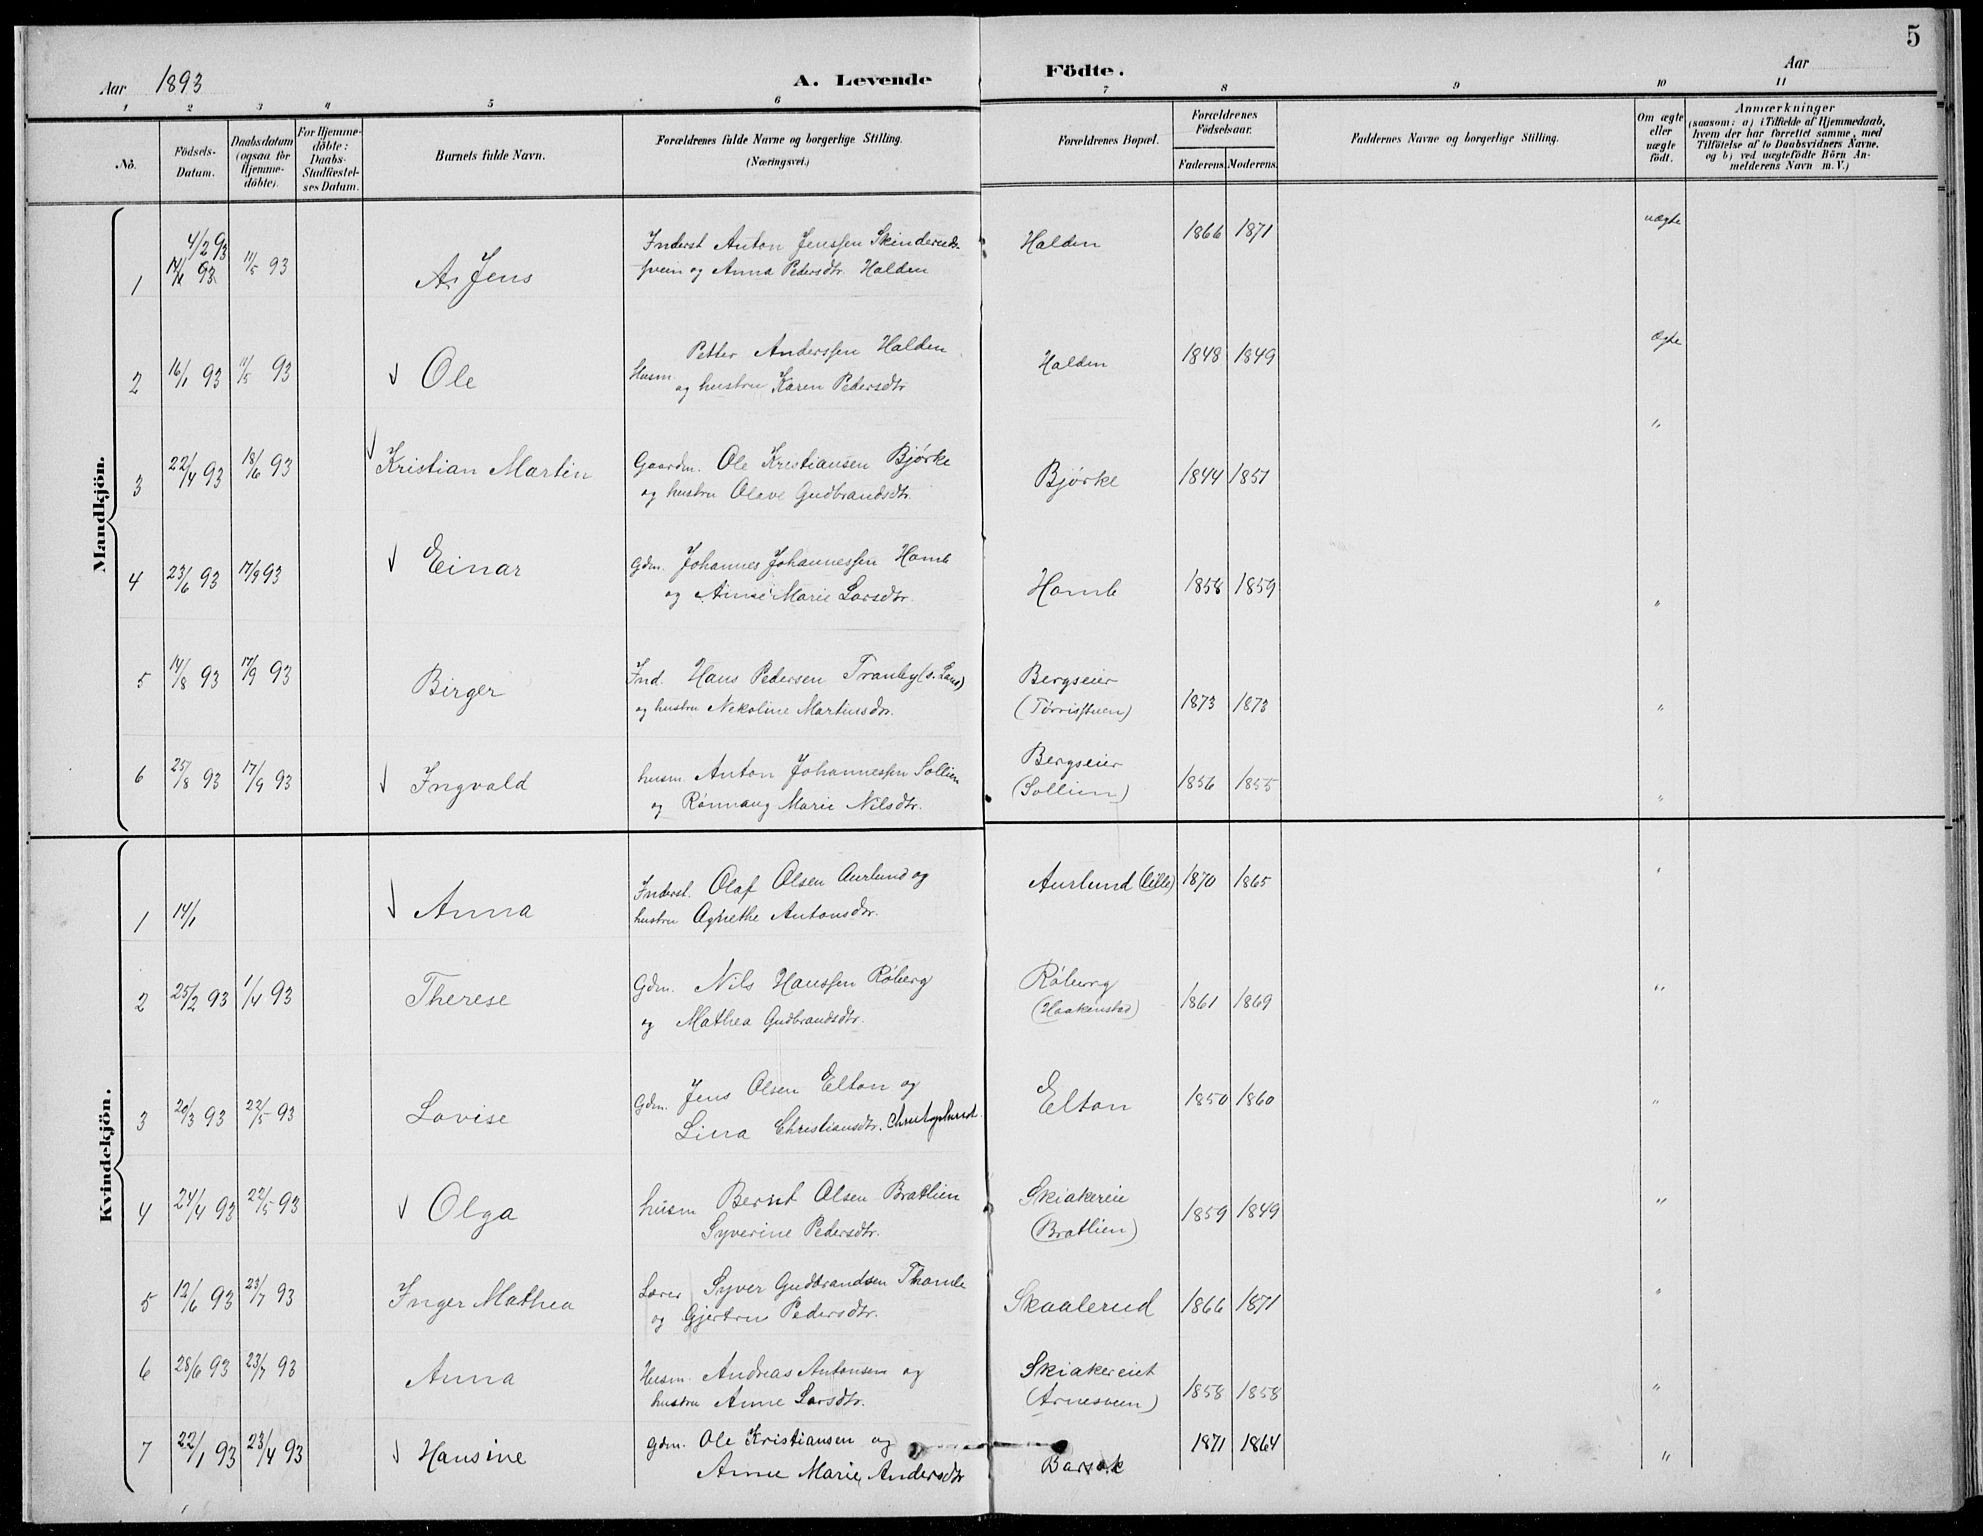 5
Aar 1893 A. Levende Födte. Aar
1 2 3 4 5 6 7 8 9 10 11
No.
Födsels-Datum.
Daabsdatum (ogsaa for Hjemme-döbte).
For Hjemme-döbte: Daabs-Stadfæstel-ses Datum.
Barnets fulde Navn.
Forældrenes fulde Navne og borgerlige Stilling. (Næringsvei.)
Forældrenes Bopæl.
Forældrenes Födselsaar.
Faderens. Moderens.
Faddernes Navne og borgerlige Stilling.
Om ægte eller uægte födt.
Anmærkninger
(saasom: a) i Tilfælde af Hjemmedaab,
hvem der har forrettet samme, med
Tilföielse af to Daabsvidners Navne,
og b) ved uægtefödte Börn An-
melderens Navn m. V.)
Mandkjön.
4/2 93
1 93 11/5 93 Jens Inderst Anton Jenssen Skinderseds- Halden 1866 1871 uægte
svein og Anna Pedersdtr. Halden
2 16/1 93 11/5 93 Ole Husm. Petter Anderssen Halden Halden 1848 1849 Ægte
og hustru Karen Pedersdtr
3 22/4 93 18/6 93 Kristian Martin Gaardm. Ole Kristiansen Bjørke Bjørke 1844 1851 "
og hustru Olave Gudbrandsdtr.
4 23/6 93 17/9 93 Einar Gdm. Johannes Johannessen Homb Homb 1858 1859 "
og Anne Marie Larsdtr.
5 14/8 93 17/9 93 Birger Ind. Hans Pedersen Tranby (s. Land) Bergseier 1873 1873 "
og hustru Nekoline Martinsdtr. (Tørrisstuen)
6 25/8 93 17/9 93 Ingvald husm. Anton Johannessen Sollien Bergseier 1856 1855 "
og Rønnaug Marie Nilsdtr. (Sollien)
Kvindekjön.
1 14/1 Anna Inderst. Olaf Olsen Aurlund og Aurlund (lille) 1870 1865 "
hustru Agnethe Antonsdtr.
2 25/2 93 1/4 93 Therese Gdm. Nils Hanssen Røberg Røberg 1861 1869 "
og Mathea Gudbrandsdtr. (Haakenstad)
3 20/3 93 22/5 93 Lovise Gdm. Jens Olsen Elton og Elton 1850 1860 "
Lina Christiansdtr.
4 24/4 93 22/5 93 Olga husm Bernt Olsen Bratlien Skiakereie 1859 1849 "
Syverine Pedersdtr. (Bratlien)
5 12/6 93 23/7 93 Inger Mathea Lærer Syver Gudbrandsen Thomle Skaalerud 1866 1871 "
og Gjertru Pedersdtr.
6 28/6 93 23/7 93 Anna Husm. Andreas Antonsen og Skiakereiet 1858 1858 "
hustru Anne Larsdtr. (Arnesveen)
7 22/1 93 23/4 93 Hansine Gdm. Ole Kristiansen og Barsok 1871 1864 "
Anne Marie Andersdtr